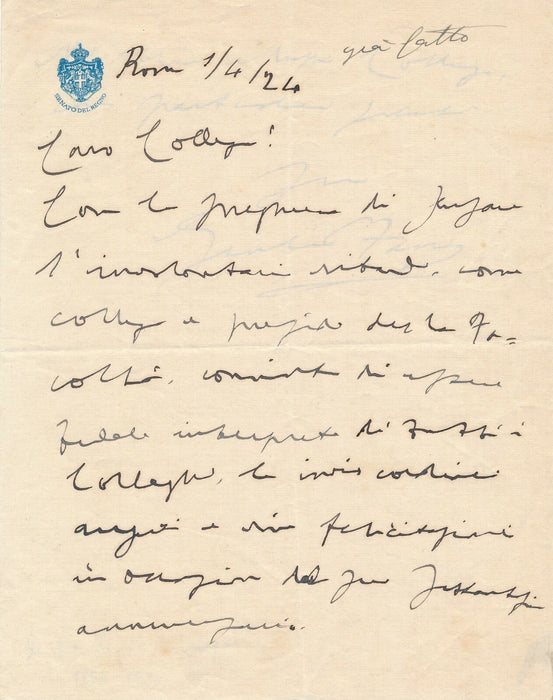 già fatto
SENATO DEL REGNO
Roma 1/4/24
Caro Collega!
Con la preghiera di scusare
l'involontario ritardo, come
collega e preside della Fa=
coltà, convinto di essere
fedele interprete di tutti i
Colleghi, le invio cordiali
auguri e vive felicitazioni
in occasione del suo
anniversario.